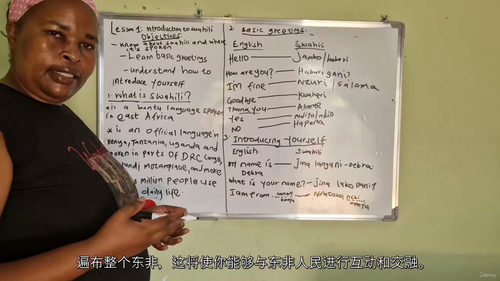 Lesson 1: introduction to swahili
Objectives
- Know about swahili and where
it's spoken
- Learn basic greetings
- understand how to
introduce yourself
1. what is Swahili?
a bantu language spoken
in East Africa
is an official language in
Kenya, Tanzania, uganda and
spoken in parts of DRC Congo,
Mozambique, and more
million people use
daily life
2. Basic greetings
English Swahili
Hello Jambo/habari
How are you? Habari gani?
I'm fine Nzuri / salama
Goodbye Kwaheri
Thank you Asante
Yes
NO Hapana
3. Introducing yourself
English Swahili
My name is Jina langu ni - Debra
Debra
What is your name? - Jina lako nani?
I am from Kenya Natoka nchi
Kenya
遍布整个东非，这将使你能够与东非人民进行互动和交融。
Udemy